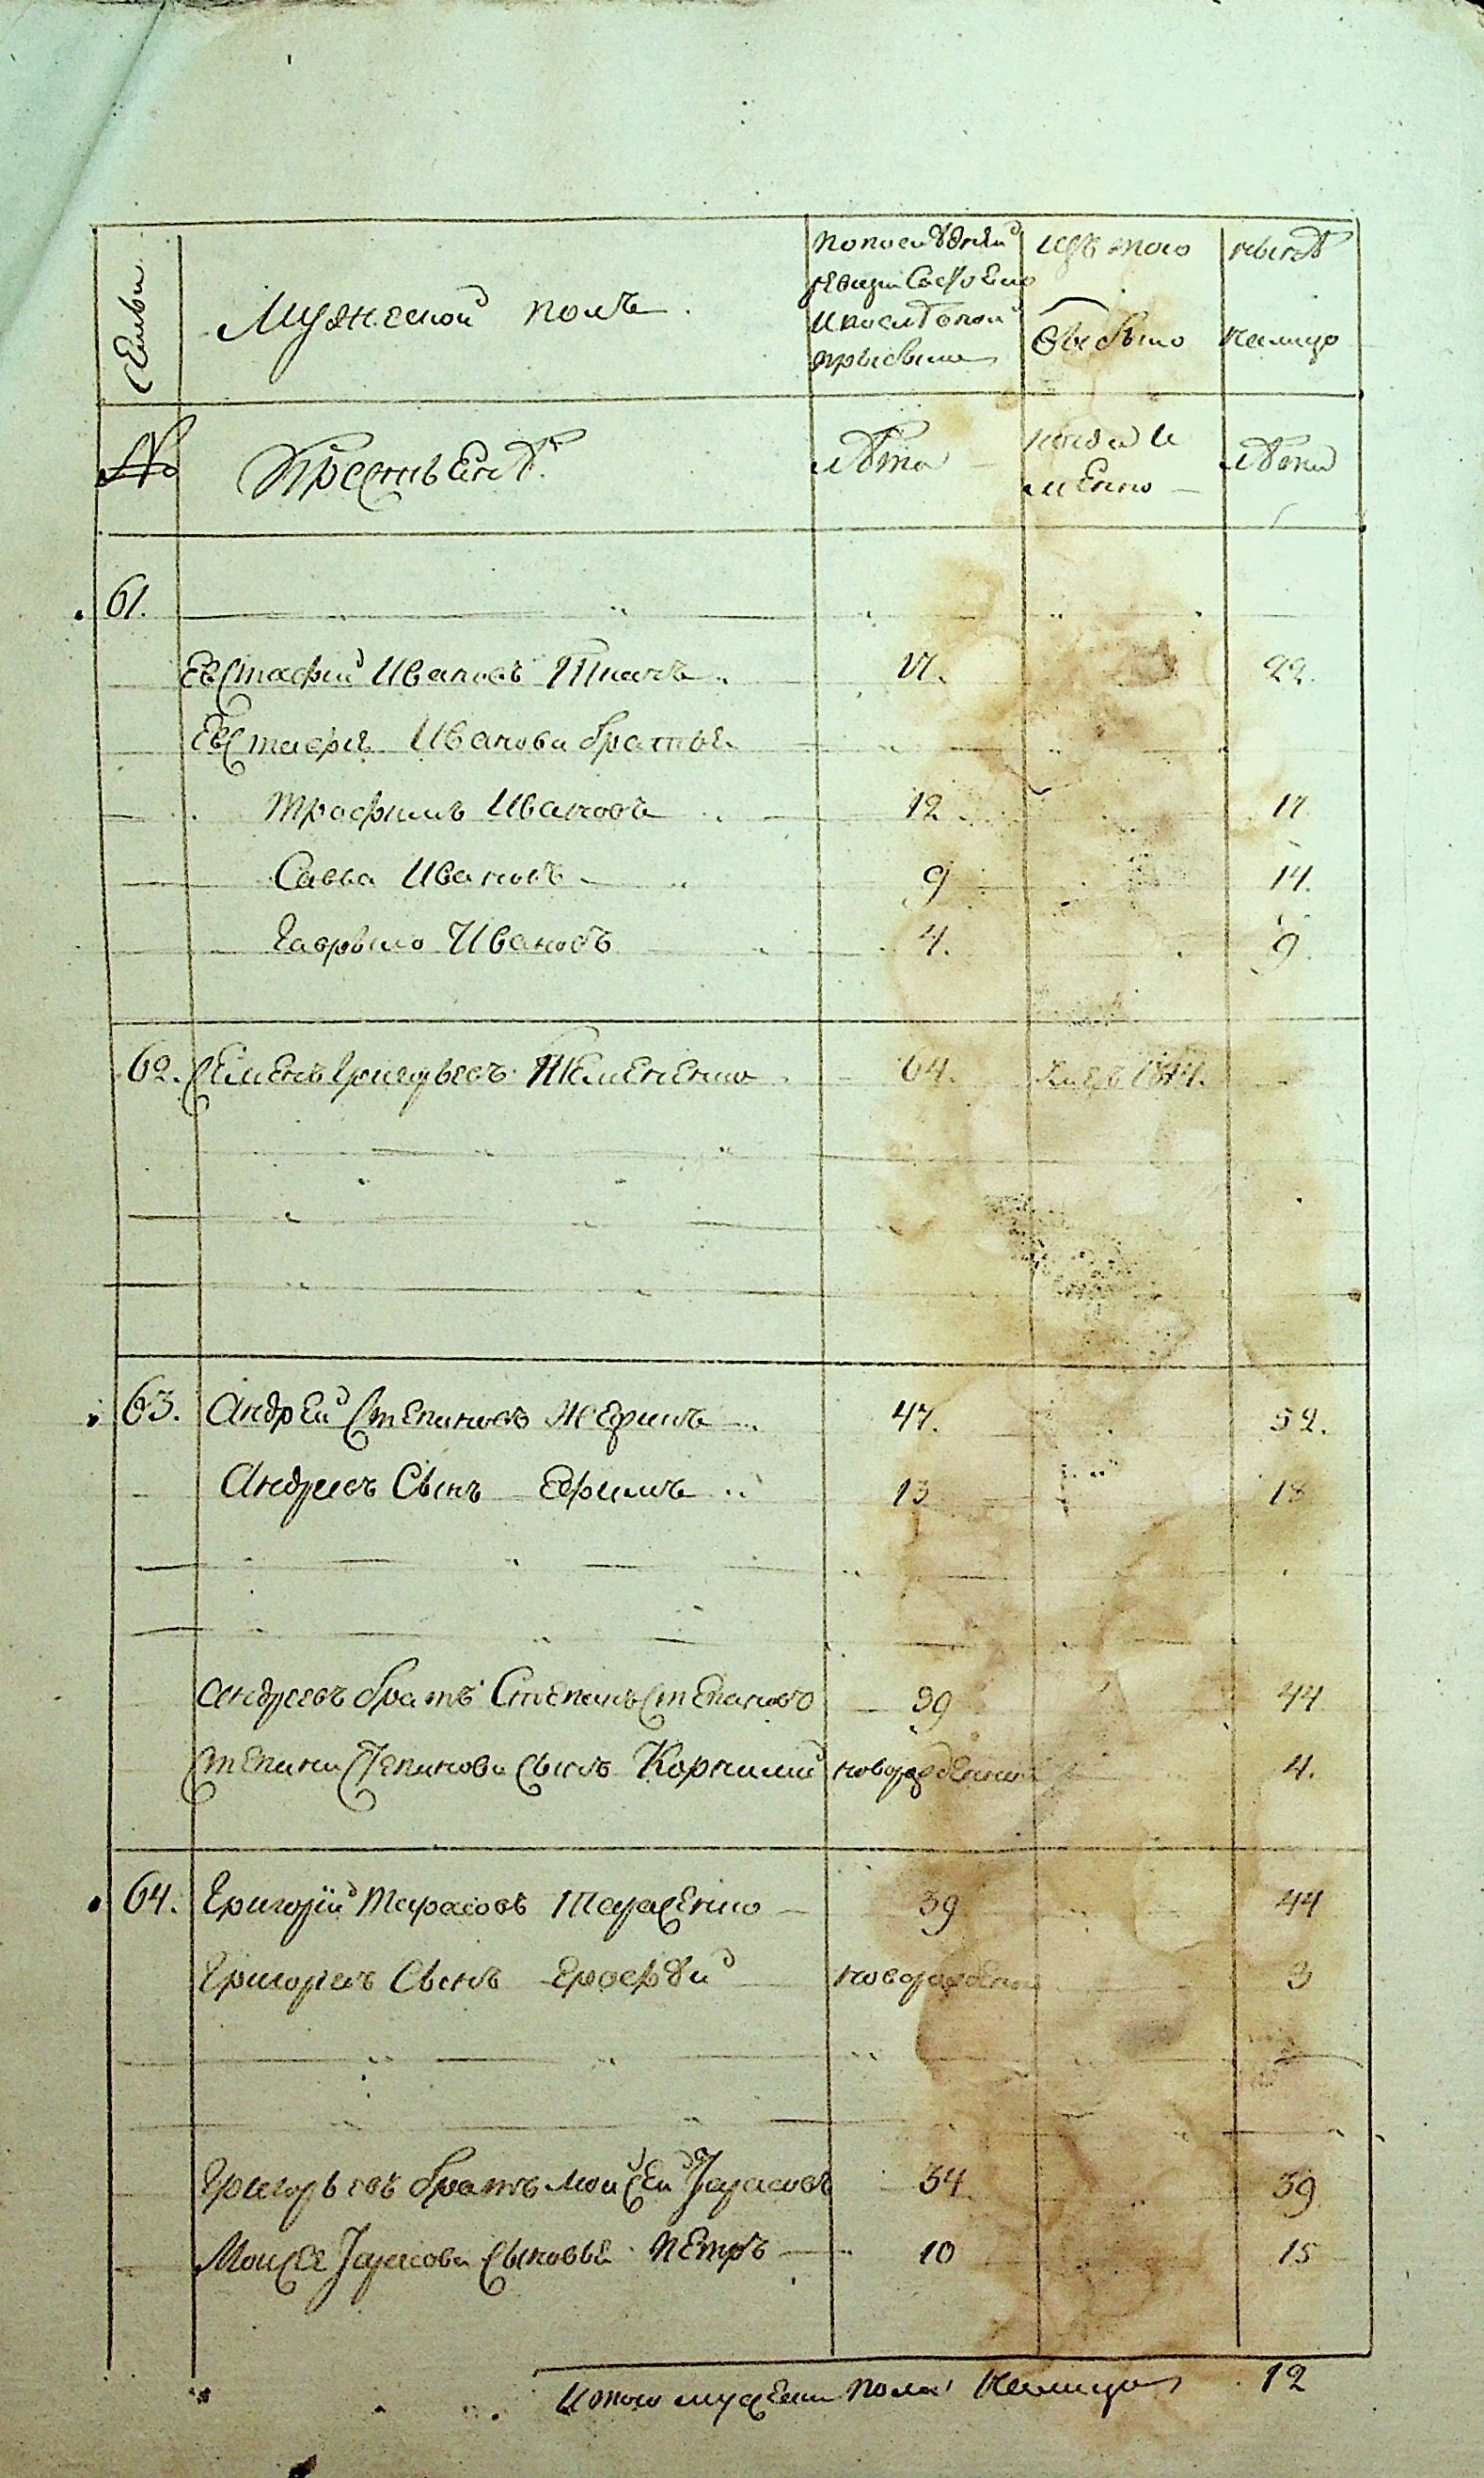 Семьи
Мужеской полъ.
По последней
ревизіи состояло
и после оной
прибыло
Изъ того
выбыло
ныне
налицо
№
Крестьяне
лѣта
когда и
менно
лѣта
61.
Евстафий Ивановъ 22.
Евстафія Иванова братья
Трофимъ Ивановъ 12 17
Савва Ивановъ 9 14.
Гаврыло Ивановъ 4. 9.
62. Семенъ Григорьевъ 64.
63. Андрей Степановъ 47. 52.
Андреевъ Сынъ Ефимъ 13 18
Андреевъ братъ Степанъ Степановъ 39 44
Степана Степанова сынъ Корнилий новорожденный 4.
64. Григорій Тарасовъ Тарасенко 39 44
Григорьевъ Сынъ Ерофѣй новорожденой 3
Григорьевъ братъ Моисей Тарасовъ 34 39
Моисея Тарасова сыновья Петръ 10 15
Итого мужеска пола налицо 12